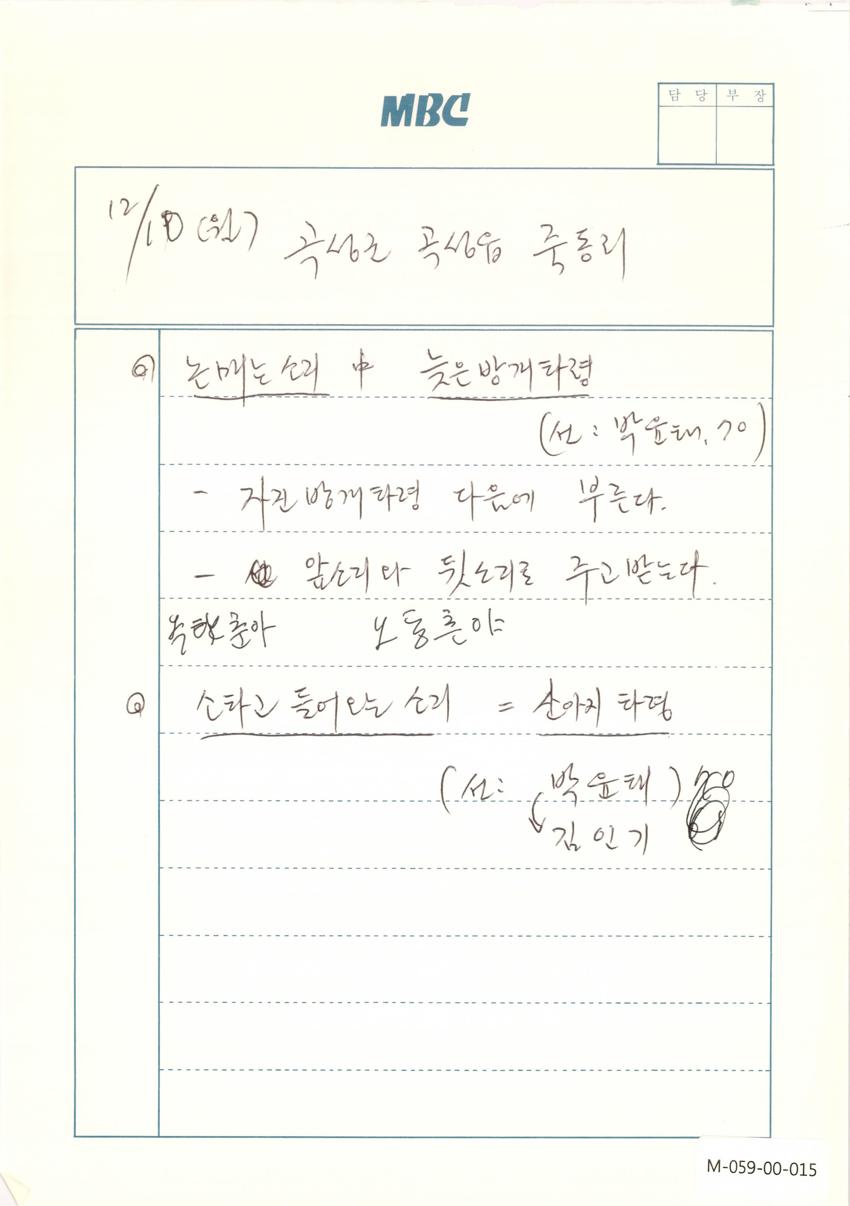 MBC
담 당 부 장
12/10 (월) 곡성군 곡성읍 죽동리
논매는소리 中 늦은방개타령
(선: 박윤태, 70)
- 자진방개타령 다음에 부른다.
- 앞소리와 뒷소리로 주고받는다.
춘아 노동춘야
소타고 들어오는 소리 = 산아지타령
(선: 박윤태)
김인기
M-059-00-015